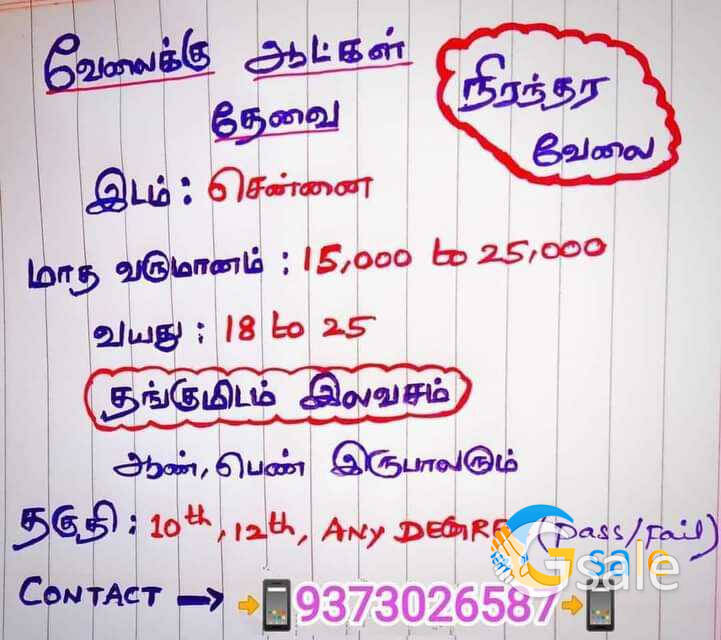 வேலைக்கு ஆட்கள்
தேவை
நிரந்தர
வேலை
இடம் : சென்னை
மாத வருமானம் : 15,000 to 25,000
வயது : 18 to 25
தங்குமிடம் இலவசம்
ஆண், பெண் இருபாலரும்
தகுதி : 10th, 12th, ANY DEGRE (Pass/Fail)
CONTACT → 9373026587
Gsale
sale